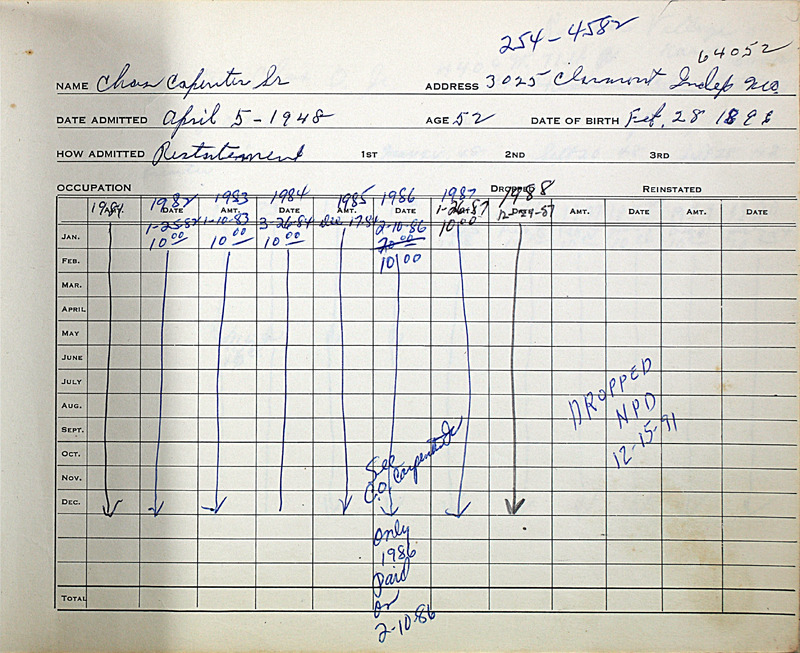 254-4582
64052
NAME Chas Capenter Sr ADDRESS 3025 Claremont Indep Mo.
DATE ADMITTED April 5-1948 AGE 52 DATE OF BIRTH Feb. 28 1896
HOW ADMITTED Restatement 1ST 2ND 3RD
OCCUPATION DROPPED REINSTATED
1982 1983 1984 1985 1986 1987 1988
DATE AMT. DATE AMT. DATE AMT. DATE AMT. DATE AMT. DATE
1-25-82 1-10-83 3-26-84 Dec 17-84 2-10-86 1-26-87 12-29-87
JAN. 10 00 10 00 10 00 20 00 10 00
FEB. 10 00
MAR.
APRIL
MAY
JUNE
JULY
AUG.
SEPT.
OCT.
NOV.
DEC.
TOTAL
See
C.O. Carpenter
Only
1986
Paid
on
2-10-86
DROPPED
NPD
12-15-91